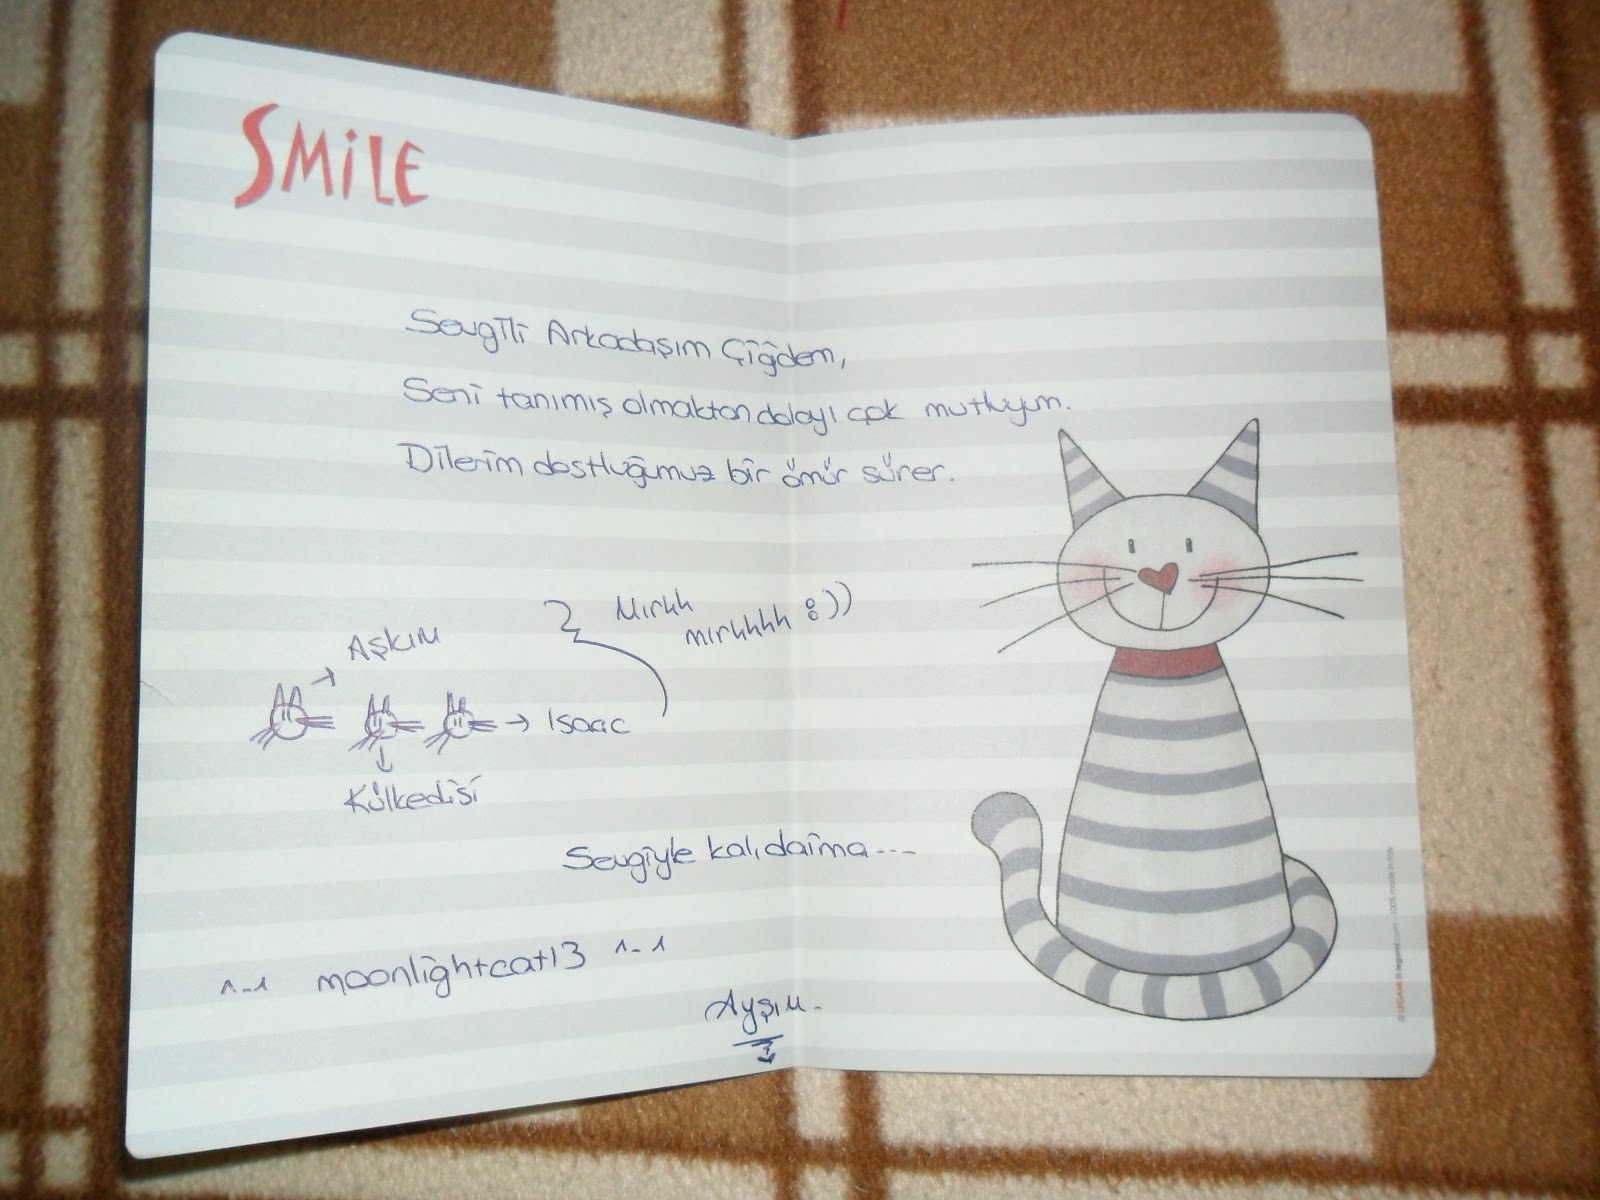 SMiLE
Sevgili Arkadaşım Çiğdem,
Seni tanımış olmaktan dolayı çok mutluyum.
Dilerim dostluğumuz bir ömür sürer.
Mırhh
mırhhhh :))
Aşkım
Isaac
Külkedisi
Sevgiyle kal, daima ---
^-^ moonlightcat13 ^-^
Ayşım.
© LEGAMI ® legami.com - 100% made in Italy